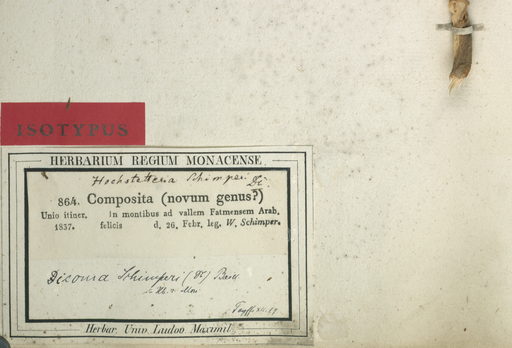 ISOTYPUS
HERBARIUM REGIUM MONACENSE
Hochstetteria Schimperi DC.
864. Composita (novum genus?)
Unio itiner. In montibus ad vallem Fatmensem Arab.
1837. felicis d. 26. Febr. leg. W. Schimper.
Dicoma Schimperi (DC)
Herbar. Univ. Ludov. Maximil.